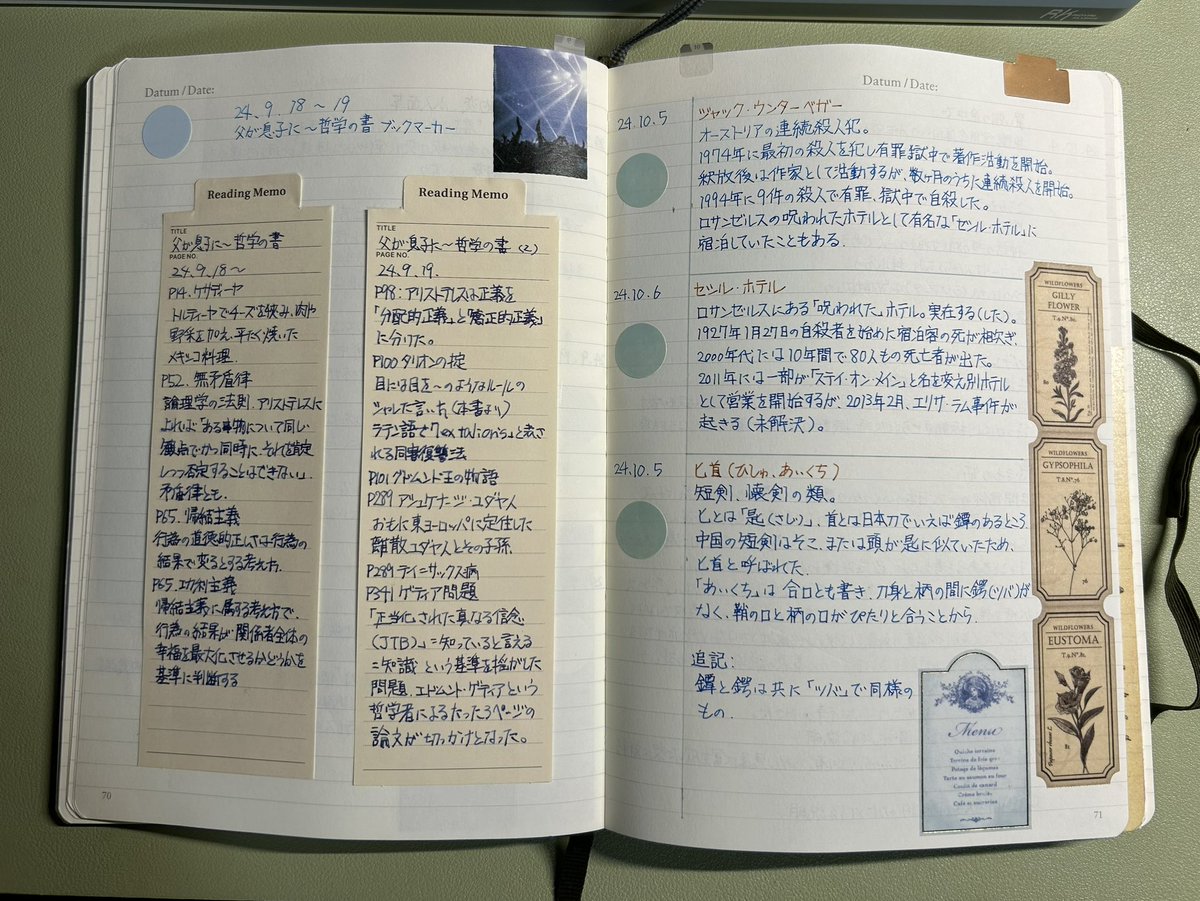 Datum / Date:
24.9.18〜19
父が息子に〜哲学の書 ブックマーカー
Reading Memo
TITLE
父が息子に〜哲学の書
PAGE NO.
24.9.18〜
P14.ケサディーヤ
トルティーヤでチーズを挟み、肉や
野菜を加え、平たく焼いた
メキシコ料理.
P52.無矛盾律
論理学の法則.アリストテレスに
よれば「ある事物について同じ
観点でかつ同時に、それを肯定
しつつ否定することはできない」.
矛盾律とも.
P65.帰結主義
行為の道徳的正しさは行為の
結果で変るとする考え方.
P65.功利主義
帰結主義に属する考え方で.
行為の結果が関係者全体の
幸福を最大化させるかどうかを
基準に判断する
Reading Memo
TITLE
父が息子に〜哲学の書(2)
PAGE NO.
24.9.19.
P98:アリストテレスは正義を
「分配的正義」と「矯正的正義」
に分けた。
P100 タリオンの掟
目には目を〜のようなルールの
シャレた言い方(本書より)
ラテン語で「lex talionis」と表さ
れる同害復讐法
P101 グドムンド王の物語
P289 アシュケナージ・ユダヤ人
おもに東ヨーロッパに定住した
離散ユダヤ人とその子孫.
P289 テイ=サックス病
P341 ゲティア問題
「正当化された真なる信念
(JTB)」=知っていると言える
=知識 という基準を揺がした
問題.エドムンド・ゲティアという
哲学者によるたった3ページの
論文が切っかけとなった。
70
Datum / Date:
24.10.5
ジャック・ウンターベガー
オーストリアの連続殺人犯。
1974年に最初の殺人を犯し有罪.獄中で著作活動を開始。
釈放後は作家として活動するが、数ヶ月のうちに連続殺人を開始。
1994年に9件の殺人で有罪、獄中で自殺した。
ロサンゼルスの呪われたホテルとして有名な「セシル・ホテル」に
宿泊していたこともある.
24.10.6
セシル・ホテル
ロサンゼルスにある「呪われた」ホテル。実在する(した)。
1927年1月27日の自殺者を始めた宿泊客の死が相次ぎ、
2000年代には10年間で80人もの死亡者が出た。
2011年には一部が「ステイ・オン・メイン」と名を変え別ホテル
として営業を開始するが、2013年2月、エリサ・ラム事件が
起きる(未解決)。
24.10.5
匕首(ひしゅ、あいくち)
短剣、懐剣の類。
匕とは「匙(さじ)」、首とは日本刀でいえば鐔のあるところ.
中国の短剣はそこ、または頭が匙に似ていたため、
匕首と呼ばれた.
「あいくち」は 合口とも書き、刀身と柄の間に鍔(ツバ)が
なく、鞘の口と柄の口がぴたりと合うことから.
追記:
鐔と鍔は共に「ツバ」で同様の
もの.
WILDFLOWERS
GILLY
FLOWER
T.4.Nº.81.
80
WILDFLOWERS
GYPSOPHILA
T.8.Nº.76
76
WILDFLOWERS
EUSTOMA
T.9.Nº.81.
81
Menu
Quiche lorraine
Terrine de foie gras
Potage de légumes
Tarte au saumon au four
Confit de canard
Crème brulée
Café et sucreries
71